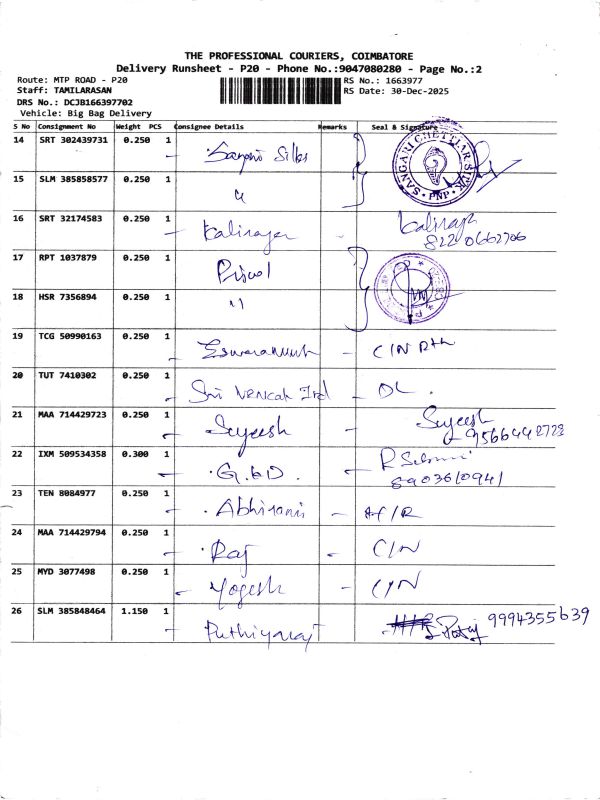 THE PROFESSIONAL COURIERS, COIMBATORE
Delivery Runsheet - P20 - Phone No.:9047080280 - Page No.:2
Route: MTP ROAD - P20 RS No.: 1663977
Staff: TAMILARASAN RS Date: 30-Dec-2025
DRS No.: DCJB166397702
Vehicle: Big Bag Delivery
S No Consignment No Weight PCS Consignee Details Remarks Seal & Signature
14 SRT 302439731 0.250 1 Silks
SANGARI CHETTIAR SILK PNP
15 SLM 385858577 0.250 1 "
16 SRT 32174583 0.250 1 Kalirajan - Kaliraja
822 0662706
17 RPT 1037879 0.250 1
18 HSR 7356894 0.250 1 "
19 TCG 50990163 0.250 1 - C/N
20 TUT 7410302 0.250 1 Sri - DL.
21 MAA 714429723 0.250 1 Sujeesh - Sujeesh
9566442723
22 IXM 509534358 0.300 1 G.D. - R
8903610941
23 TEN 8084977 0.250 1 Abhirami - H/R
24 MAA 714429794 0.250 1 Raj - C/N
25 MYD 3077498 0.250 1 Yogesh - C/N
26 SLM 385848464 1.150 1 Puthiyaraj 9994355639